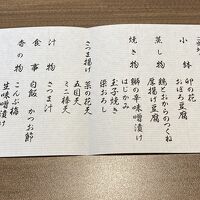 小鉢
卯の花
おぼろ豆腐
蒸し物
鶏とおからのつくね
厚揚げ豆腐
焼き物
鰤の辛味噌漬け
はじかみ
玉子焼き
梁おろし
さつま揚げ
菜の花天
五目天
ミニ棒天
汁物
さつま汁
食事
白飯 かつお節
香の物
こんぶ梅
生味噌漬け